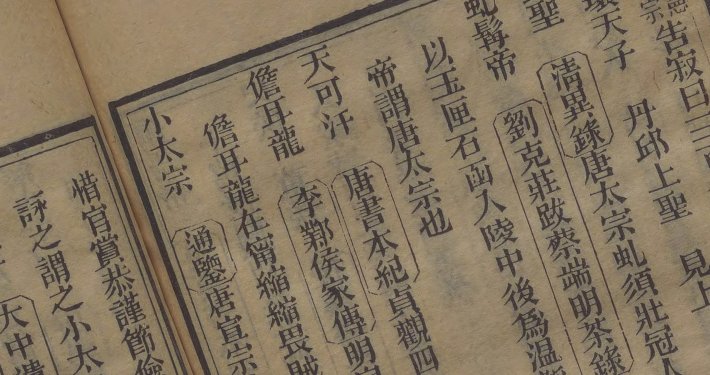 告寂曰三
天子 丹邱上聖 見上
聖 清異錄唐太宗虬須壯冠人
虬髯帝 劉克莊跋蔡端明茶錄
以玉匣石函入陵中後爲温
帝謂唐太宗也
天可汗 唐書本紀貞觀四
儋耳龍 李鄴侯家傳明
儋耳龍在甯縮縮畏賊
小太宗 通鑒唐宣宗
惜官賞恭謹節儉
詠之謂之小太
大中遺